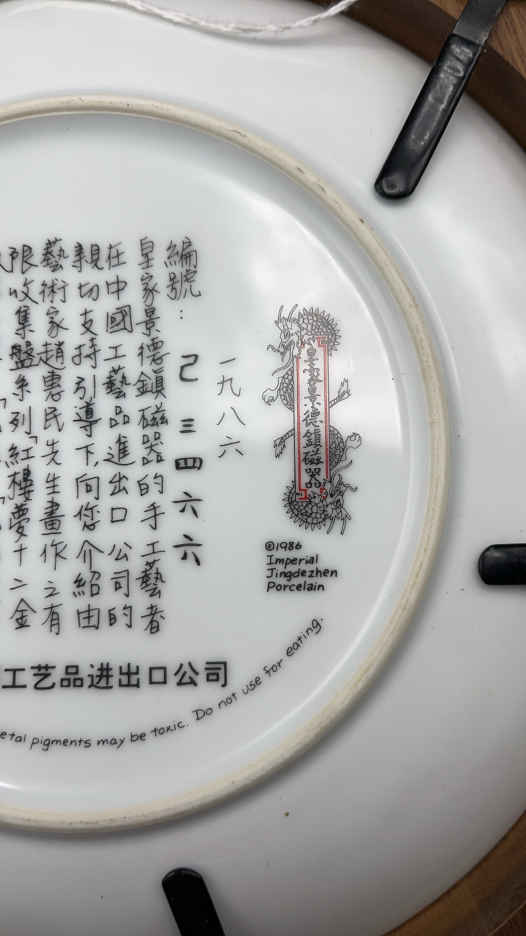 皇家景德鎮磁器
©1986
Imperial
Jingdezhen
Porcelain
一九八六
編號：己三四六六
皇家景德鎮磁器的手工藝者
在中國工藝品進出口公司的
親切支持引導下,向您介紹由
藝術家趙惠民先生畫作之有
限收集盤系列「紅樓夢十二金
工艺品进出口公司
etal pigments may be toxic. Do not use for eating.